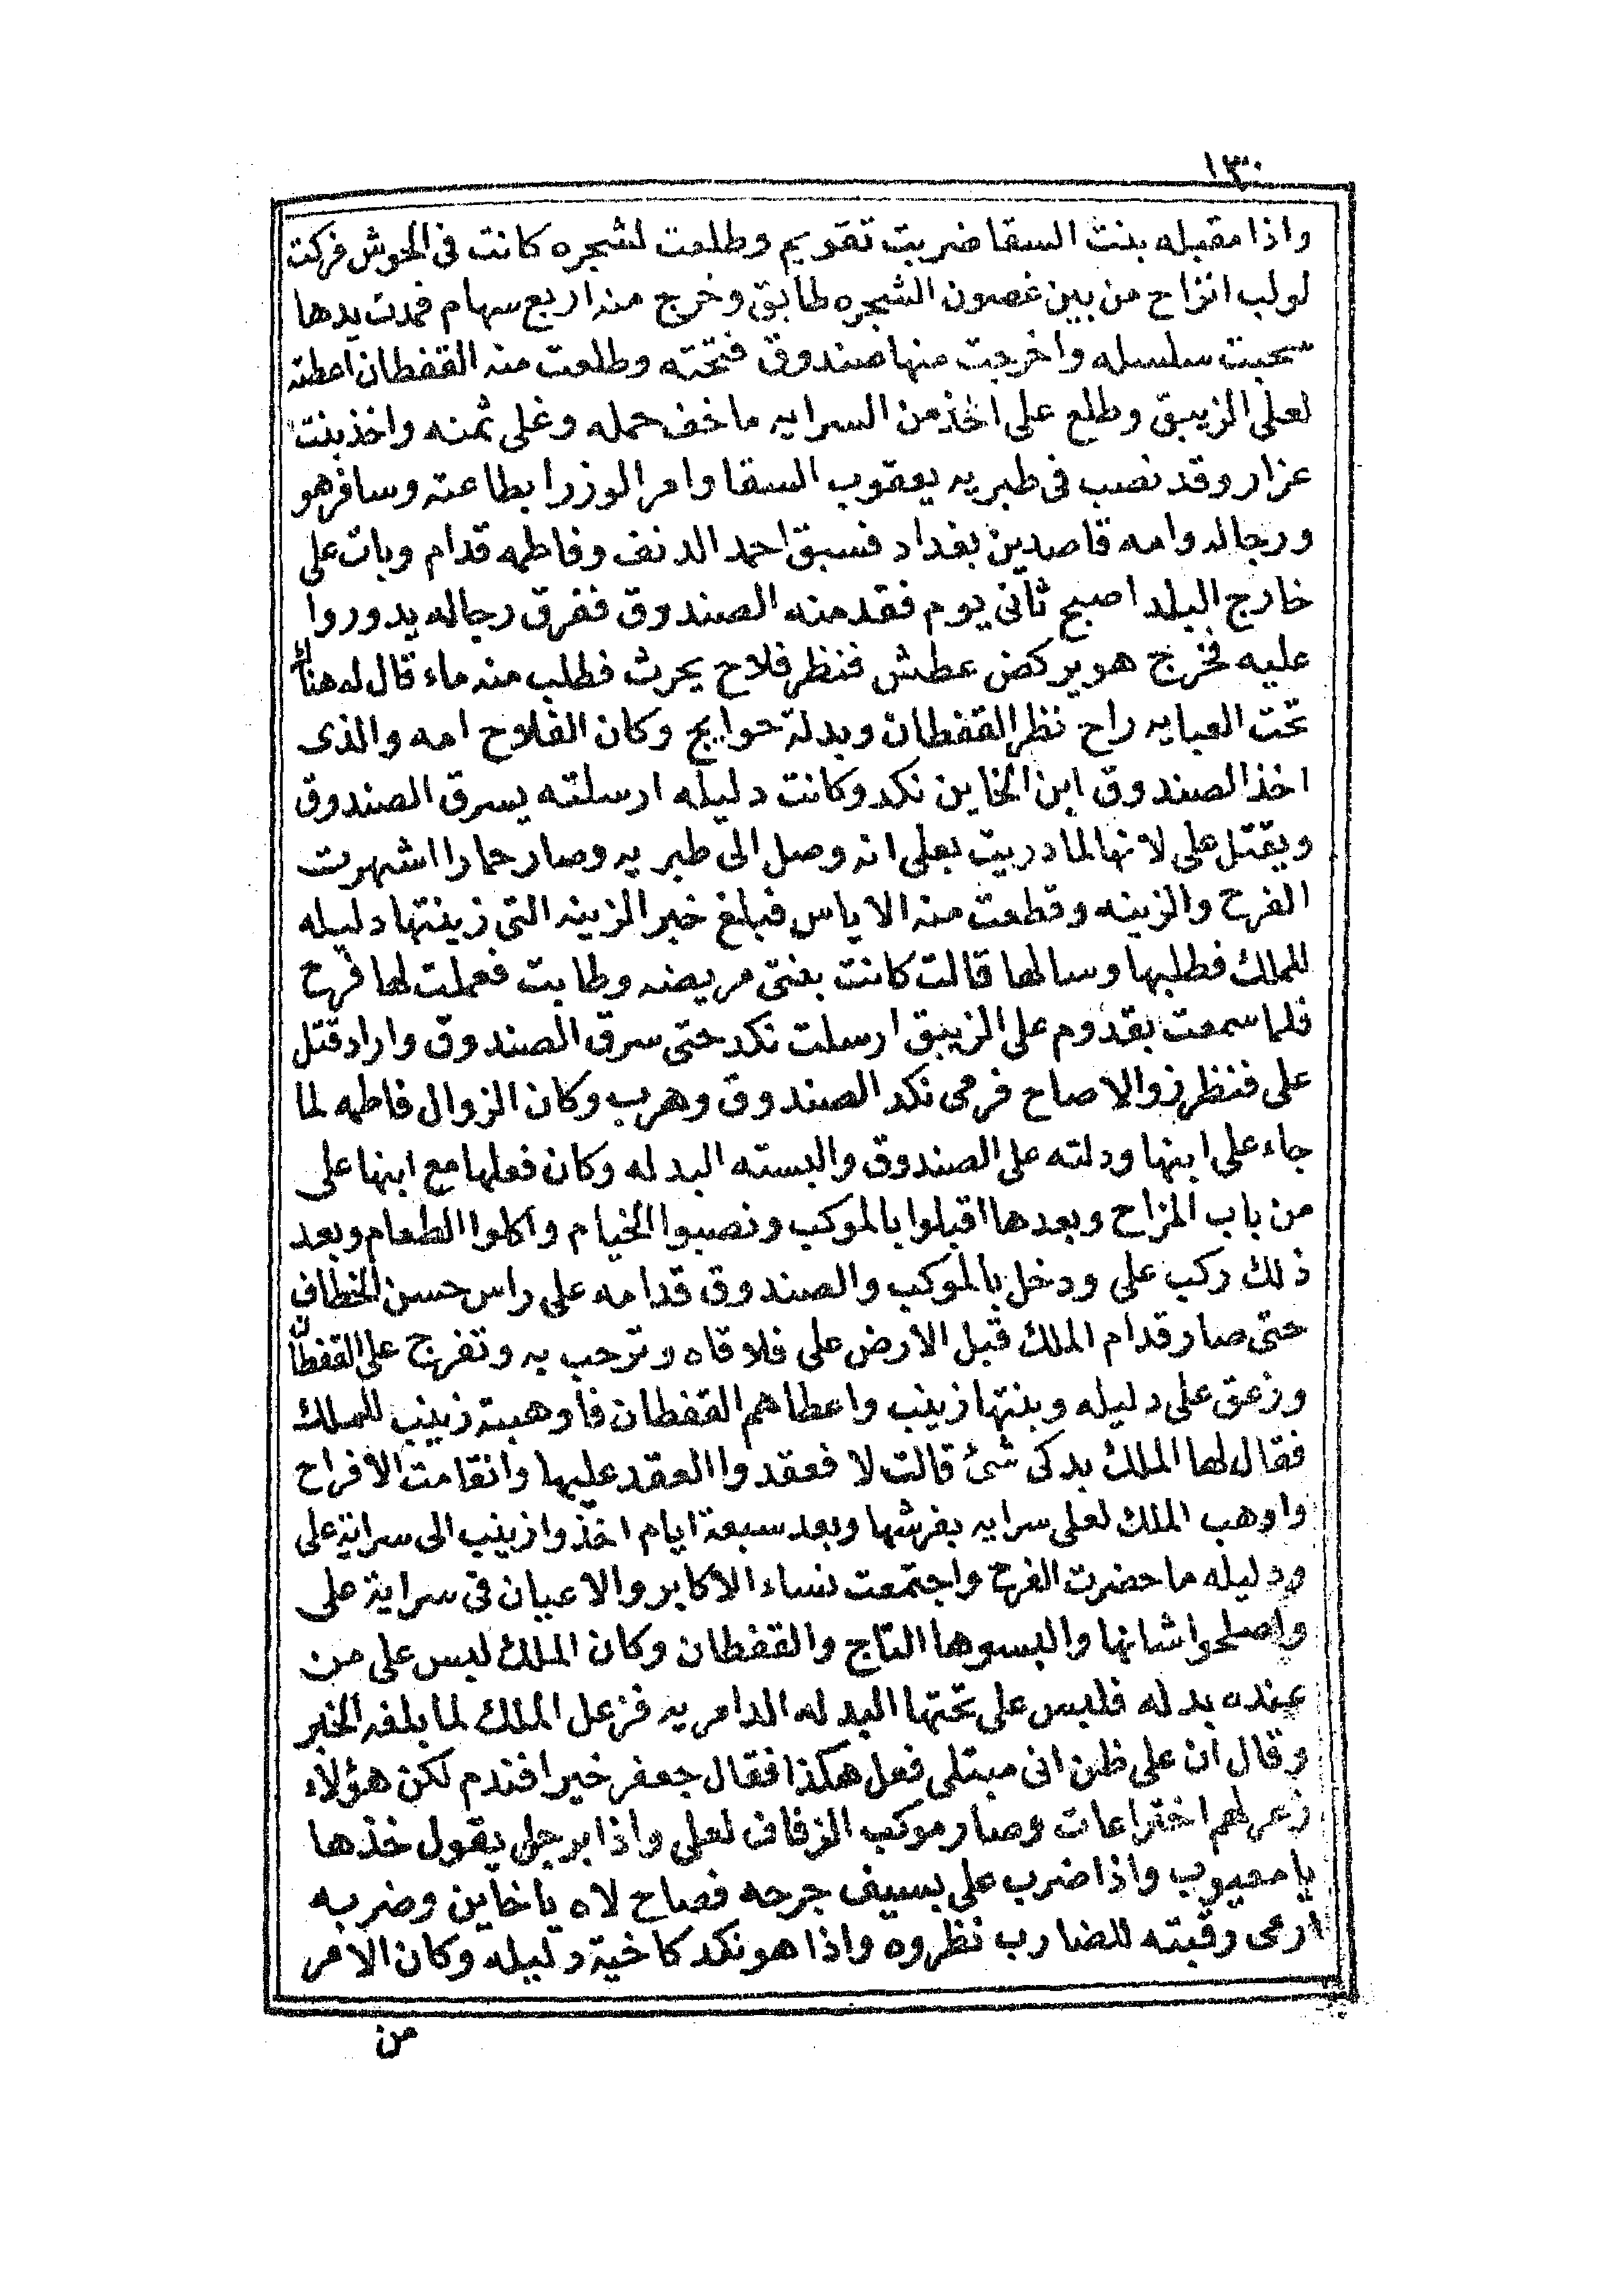 ١٣٠
واذا مقبله بنت السقا ضربت تقويم وطلعت لشجره كانت فى الحوش فركت
لولب انزاح من بين غصون الشجره طابق وخرج منه اربع سهام فمدت يدها
سحبت سلسله واخرجت منها صندوق فتحته وطلعت منه القفطان اعطته
لعلى الزيبق وطلع على اخذ من السرايه ما خف حمله وغلى ثمنه واخذ بنت
عزار وقد نصب فى طبريه يعقوب السقا وامر الوزرا بطاعته وسافر هو
ورجاله وامه قاصدين بغداد فسبق احمد الدنف وفاطمه قدام وبات على
خارج البلد اصبح ثانى يوم فقد منه الصندوق ففرق رجاله يدوروا
عليه فخرج هو يركض عطش فنظر فلاح يحرث فطلب منه ماء قال له هناك
تحت العبايه راح نظر القفطان وبدلة حوايج وكان الفلاح امه والذى
اخذ الصندوق ابن الخاين نكد وكانت دليله ارسلته يسرق الصندوق
ويقتل على لانها لما دريت بعلى انه وصل الى طبريه وصار حمارا اشهرت
الفرح والزينه وقطعت منه الاياس فبلغ خبر الزينه التى زينتها دليله
للملك فطلبها وسالها قالت كانت بنتى مريضه وطابت فعملت لها فرح
فلما سمعت بقدوم على الزيبق ارسلت نكد حتى سرق الصندوق واراد قتل
على فنظر زوالا صاح فرمى نكد الصندوق وهرب وكان الزوال فاطمه لما
جاء على ابنها ودلته على الصندوق والبسته البدله وكان فعلها مع ابنها على
من باب المزاح وبعدها اقبلوا بالموكب ونصبوا الخيام واكلوا الطعام وبعد
ذلك ركب على ودخل بالموكب والصندوق قدامه على راس حسن الخطاف
حتى صار قدام الملك قبل الارض على فلاقاه وترحب به وتفرج على القفطان
وزعق على دليله وبنتها زينب واعطاهم القفطان فاوهبته زينب للملك
فقال لها الملك بدكى شئ قالت لا فعقدوا العقد عليها وانقامت الافراح
واوهب الملك لعلى سرايه بفرشها وبعد سبعة ايام اخذوا زينب الى سراية على
ودليله ما حضرت الفرح واجتمعت نساء الاكابر والاعيان فى سراية على
واصلحوا شانها والبسوها التاج والقفطان وكان الملك لبس على من
عنده بدله فلبس على تحتها البدله الدامريه فزعل الملك لما بلغه الخبر
وقال ان على ظن انى مبتلى فعل هكذا فقال جعفر خير افندم لكن هؤلاء
زعر لهم اختراعات وصار موكب الزفاف لعلى واذا برجل يقول خذها
يا معيوب واذا ضرب على بسيف جرحه فصاح لاه يا خاين وضربه
ارمى رقبته للضارب نظروه واذا هو نكد كاخية دليله وكان الامر
من